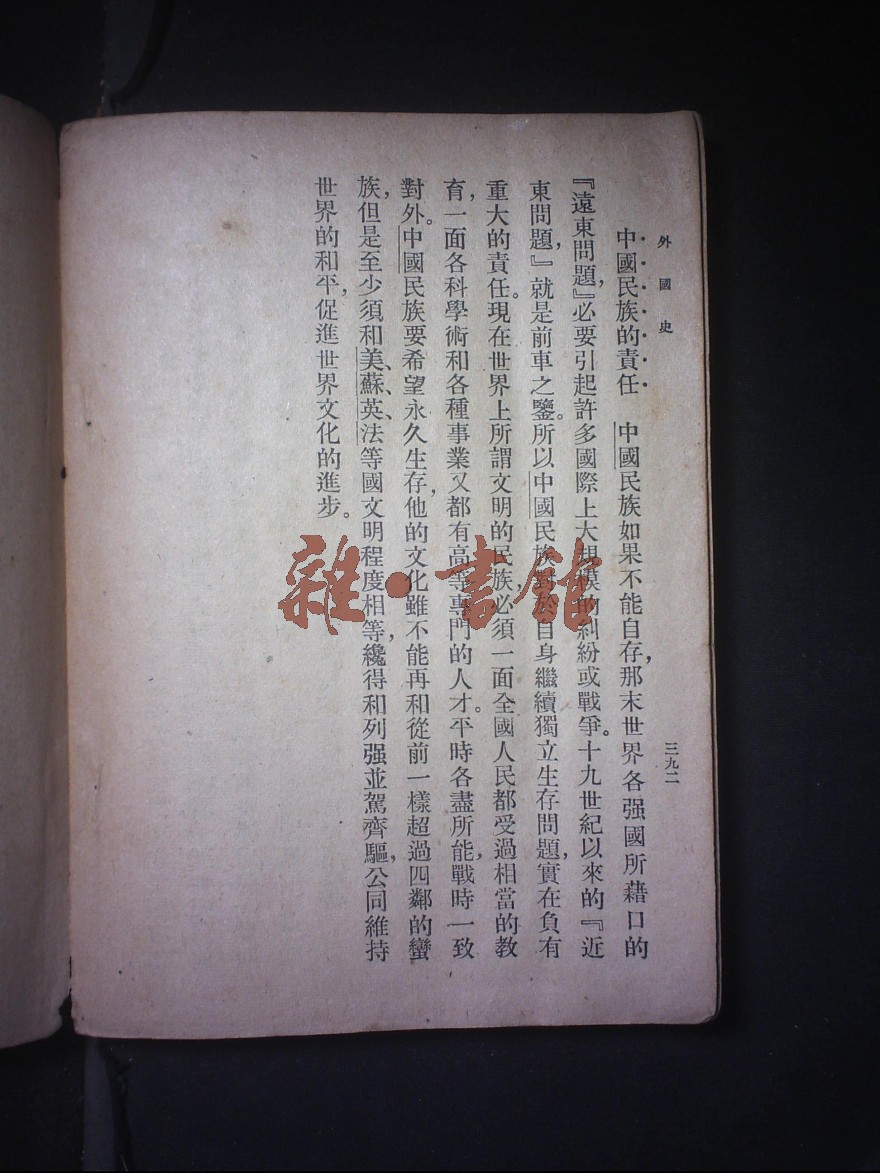 外國史
三九二
中國民族的責任　中國民族如果不能自存，那末世界各强國所藉口的
『遠東問題，』必要引起許多國際上大規模的糾紛或戰爭。十九世紀以來的『近
東問題，』就是前車之鑒。所以中國民族對於自身繼續獨立生存問題，實在負有
重大的責任。現在世界上所謂文明的民族，必須一面全國人民都受過相當的教
育，一面各科學術和各種事業又都有高等專門的人才。平時各盡所能，戰時一致
對外。中國民族要希望永久生存，他的文化雖不能再和從前一樣超過四鄰的蠻
族，但是至少須和美、蘇、英、法等國文明程度相等，纔得和列强並駕齊驅，公同維持
世界的和平，促進世界文化的進步。
雜·書館